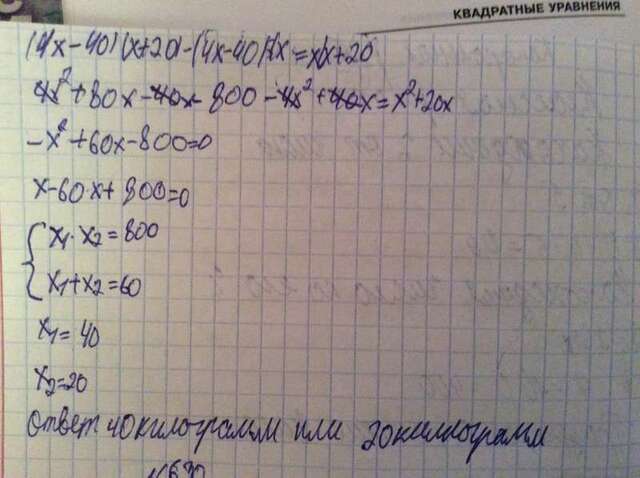 КВАДРАТНЫЕ УРАВНЕНИЯ
(4x-40)(x+20)-(4x-40)*x=x(x+20
4x²+80x-40x-800-4x²+40x=x²+20x
-x²+60x-800=0
x-60x+800=0
x₁·x₂=800
x₁+x₂=60
x₁=40
x₂=20
ответ 40килограмм или 20килограмм